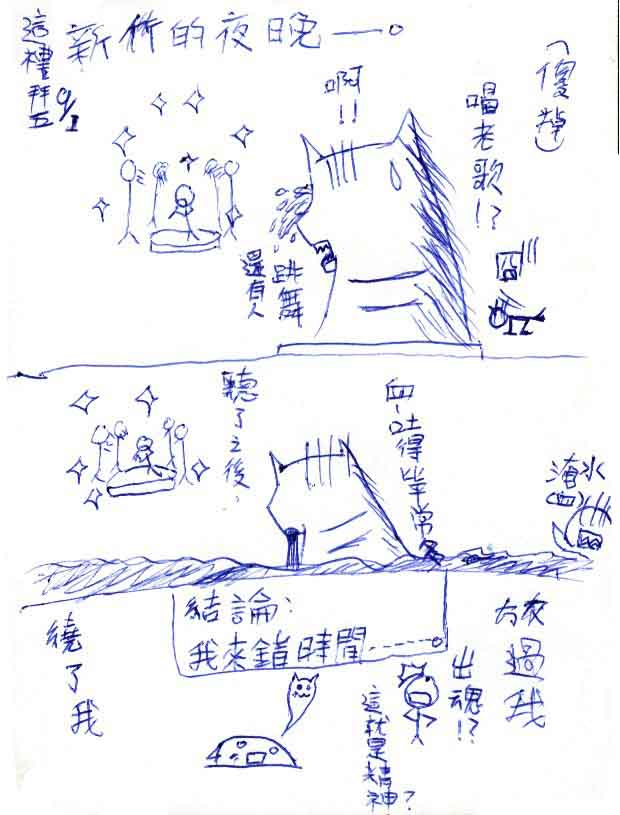 新竹的夜晚——。
這禮拜五
9/1
(傻掉)
啊!!
唱老歌!?
囧
還有人
跳舞
聽了之後,
血~吐得比平常多
淹水
(血)
結論:
我來錯時間------。
繞了我
放過我
出魂!?
這就是精神?